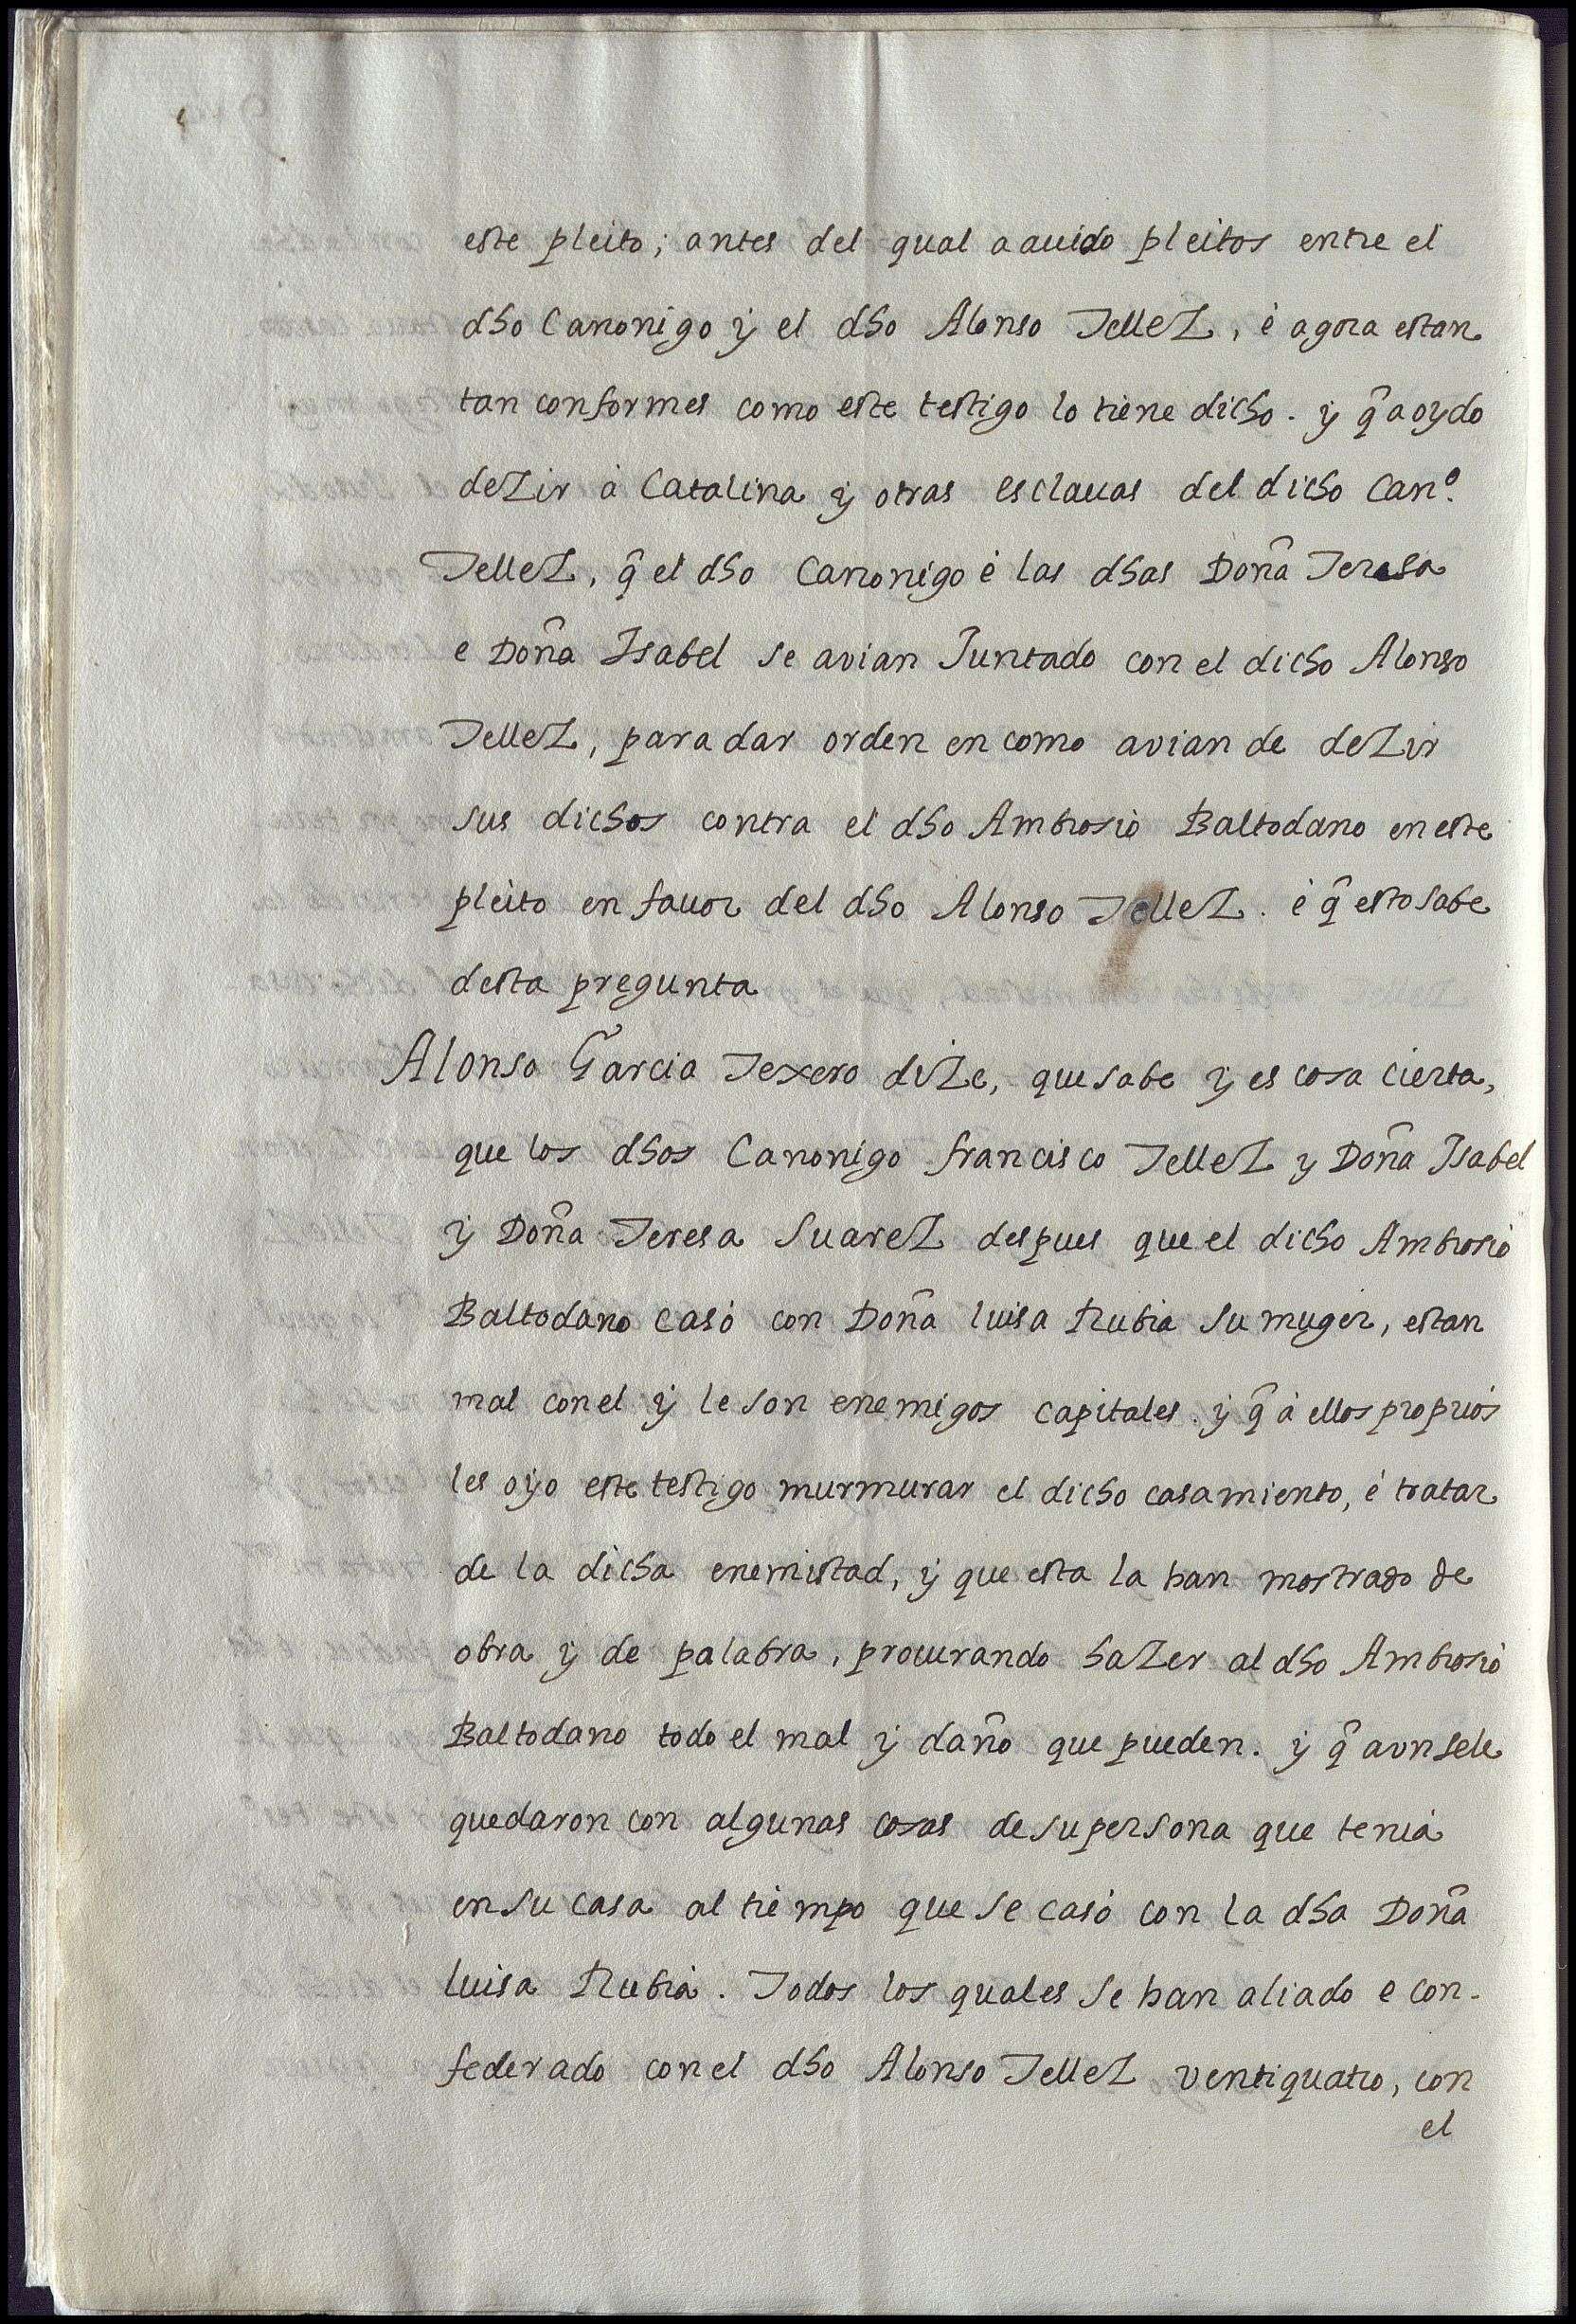 este pleito; antes del qual a auido pleitos entre el
dho Canonigo y el dho Alonso Tellez, è agora estan
tan conformes como este testigo lo tiene dicho. y q̃ a oydo
dezir à Catalina y otras esclauas del dicho Canº.
Tellez, q̃ el dho Canonigo è las dhas Doña Teresa
e Doña Isabel se avian Juntado con el dicho Alonso
Tellez, para dar orden en como avian de dezir
sus dichos contra el dho Ambrosio Baltodano en este
pleito en fauor del dho Alonso Tellez. è q̃ esto sabe
desta pregunta
Alonso Garcia Texero dize, que sabe y es cosa cierta,
que los dhos Canonigo francisco Tellez y Doña Isabel
y Doña Teresa Suarez despues que el dicho Ambrosio
Baltodano casó con Doña luisa Rubia su muger, estan
mal con el y le son enemigos capitales. y q̃ à ellos proprios
les oyo este testigo murmurar el dicho casamiento, è tratar
de la dicha enemistad, y que esta la han mostrado de
obra y de palabra, procurando hazer al dho Ambrosio
Baltodano todo el mal y daño que pueden. y q̃ avn sele
quedaron con algunas cosas de su persona que tenia
en su casa al tiempo que se casó con la dha Doña
luisa Rubia. Todos los quales se han aliado e con-
federado con el dho Alonso Tellez ventiquatro, con
el